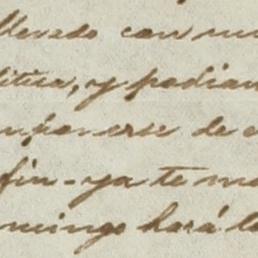 llevado con mu
litica, y podian
mponerse de e
fin-ya te ma
mingo hará lo